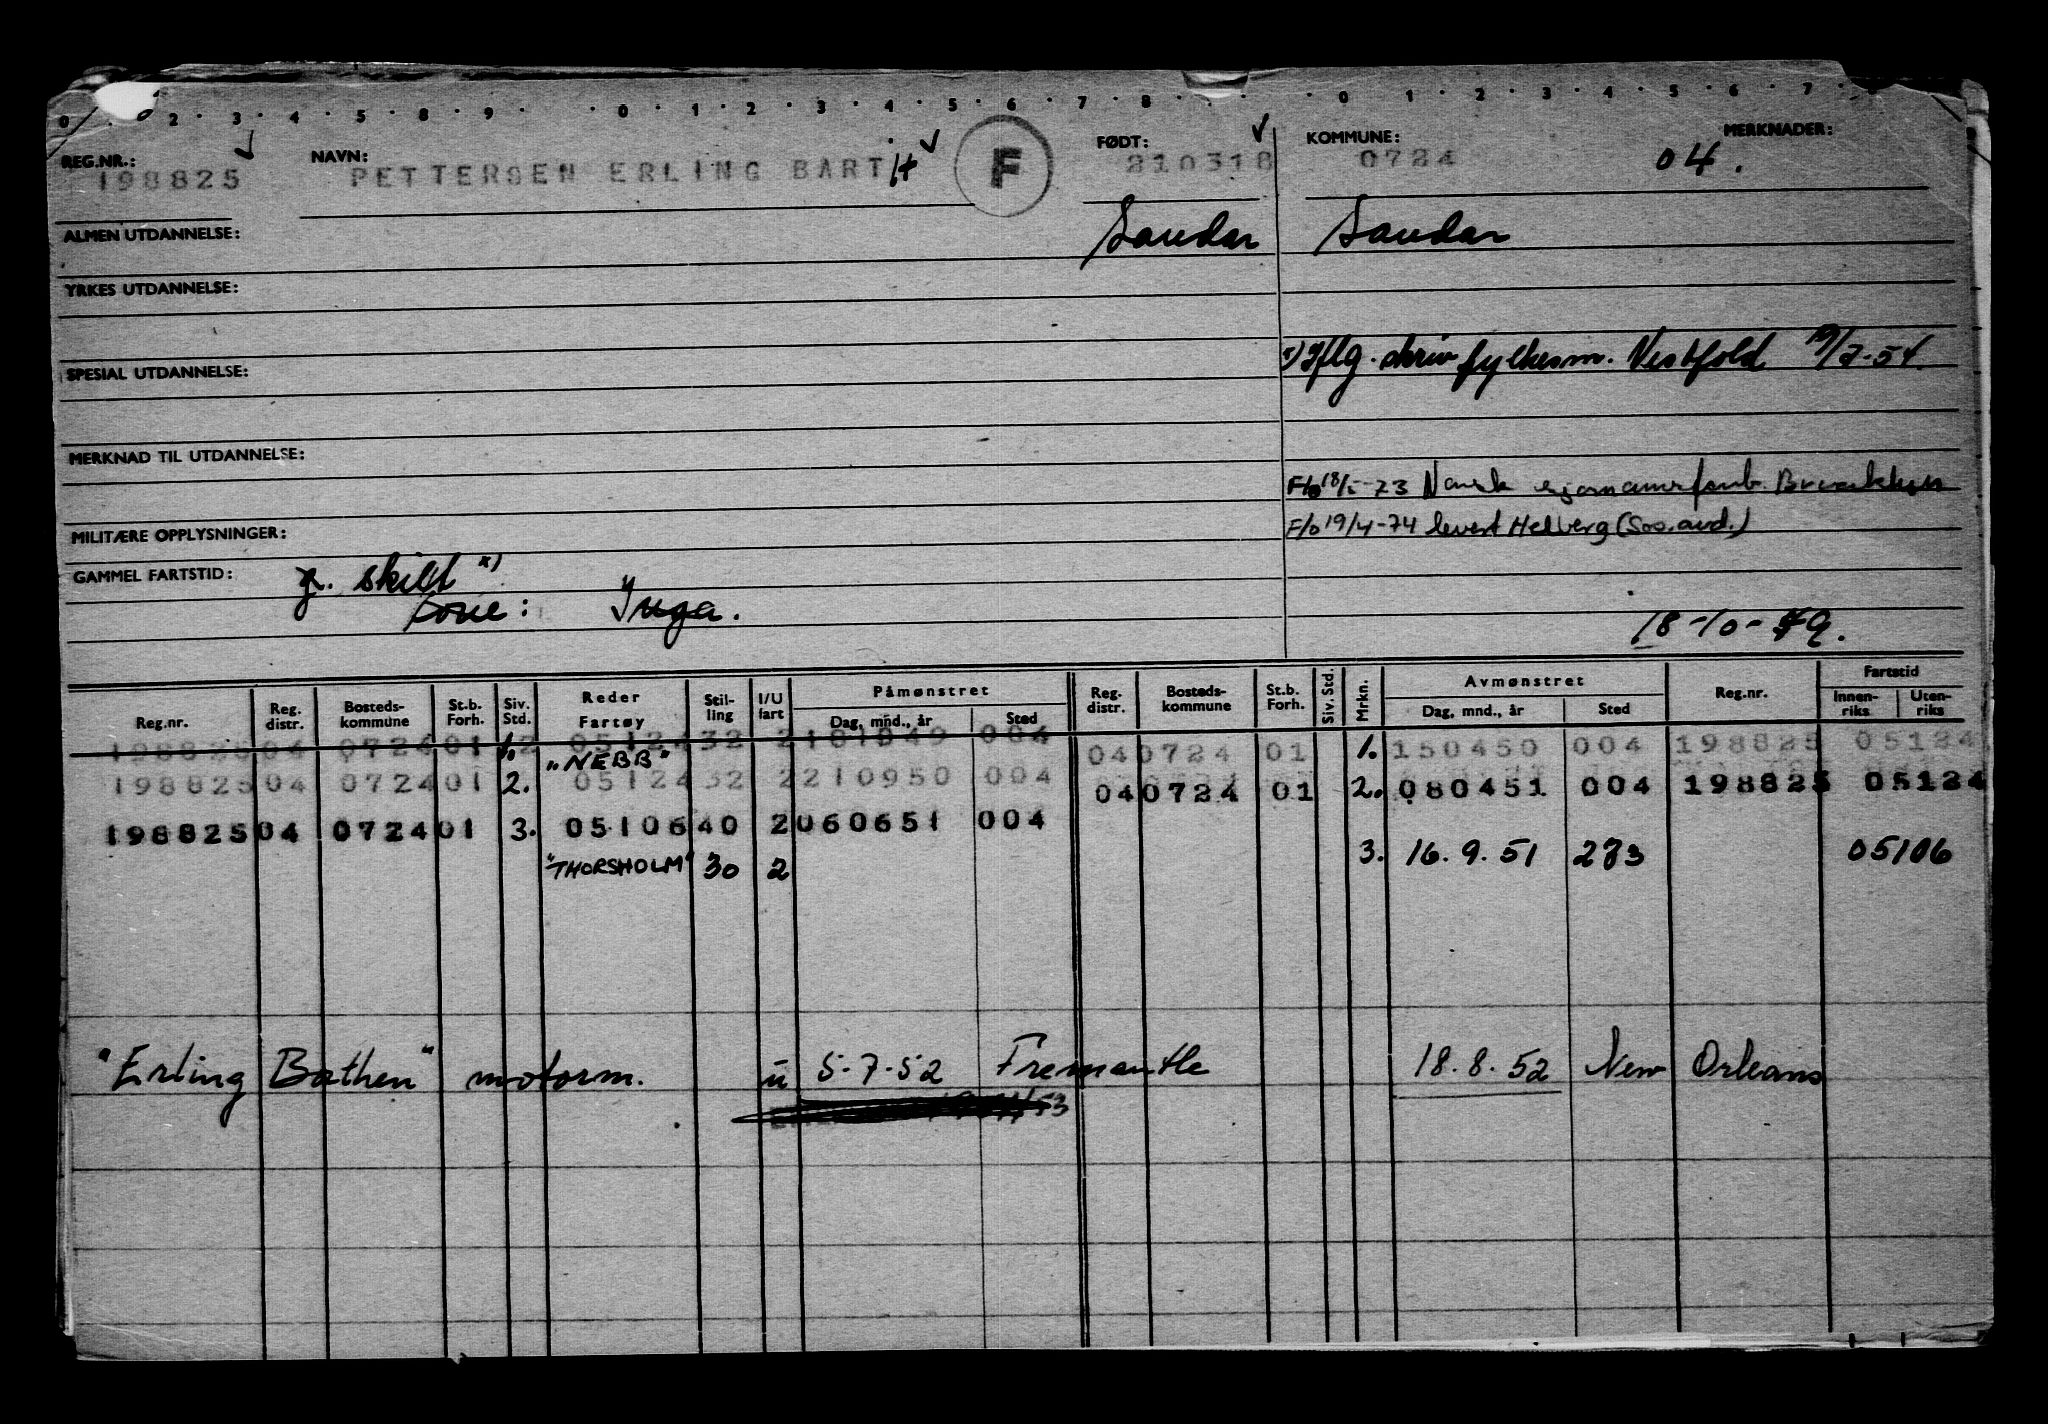 0 2 3 4 5 8 9 0 1 2 3 4 5 6 7 8 0 1 2 3 4 5 6 7
REG.NR.: 198825 NAVN: PETTERSEN ERLING BARTH F FØDT: 210318 KOMMUNE: 0724 MERKNADER: 04.
ALMEN UTDANNELSE: Sandar Sandar
YRKES UTDANNELSE:
x) Iflg. skriv fylkesm. Vestfold 19/2-54.
SPESIAL UTDANNELSE:
MERKNAD TIL UTDANNELSE:
F/o 18/5-73 Norsk sjømannsforb.
MILITÆRE OPPLYSNINGER:
F/o 19/4-74 levert Helberg (Sos.avd.)
GAMMEL FARTSTID: g. skilt x)
Kone: Inga.
18-10-49.
Reg.nr. Reg. distr. Bosteds-kommune St.b. Forh. Siv. Std. Reder Fartøy Stil-ling I/U fart Påmønstret Dag, mnd., år Sted Reg. distr. Bosteds-kommune St.b. Forh. Siv. Std. Mrkn. Avmønstret Dag, mnd., år Sted Reg.nr. Fartstid Innen-riks Uten-riks
198825 04 0724 01 1. 2 05124 32 2 181049 004 04 0724 01 1. 150450 004 198825 05124
"NEBB"
198825 04 0724 01 2. 05124 32 2 210950 004 04 0724 01 2. 080451 004 198825 05124
198825 04 0724 01 3. 05106 40 2 060651 004
"THORSHOLM" 30 2 3. 16.9.51 273 05106
"Erling Bøthen" motorm. u 5-7-52 Fremantle 18.8.52 New Orleans